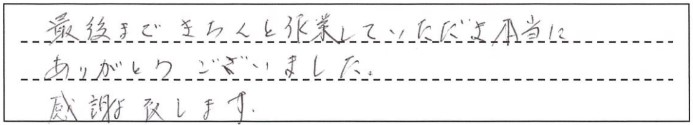 最後まできちんと作業していただき本当に
ありがとうございました。
感謝致します.